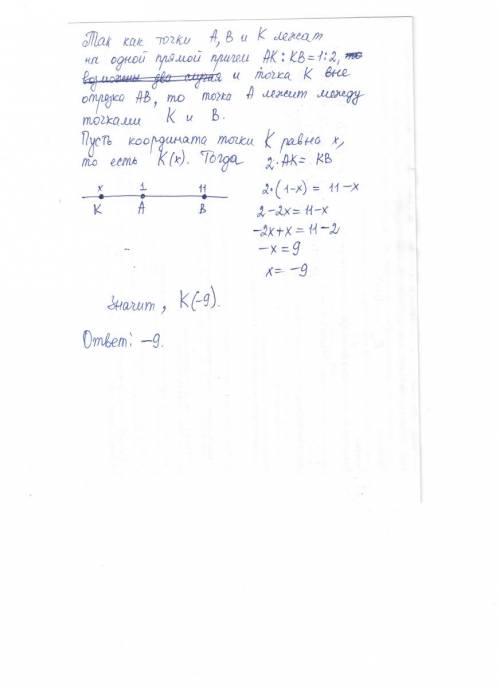 Так как точки A, B и K лежат
на одной прямой причем AK:KB=1:2, то
возможны два случая и точка K вне
отрезка AB, то точка A лежит между
точками K и B.
Пусть координата точки K равна x,
то есть K(x). Тогда 2·AK= KB
x 1 11
K A B
2·(1-x) = 11-x
2-2x=11-x
-2x+x=11-2
-x=9
x= -9
Значит, K(-9).
Ответ: -9.